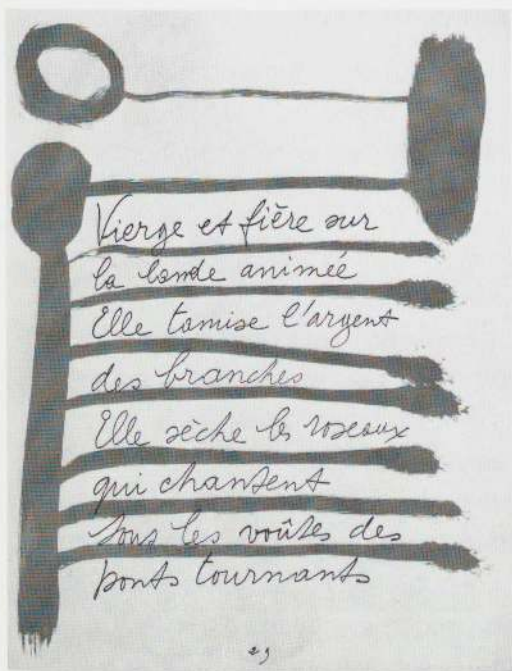 Vierge et fière sur
la lande animée
Elle tamise l'argent
des branches
Elle sèche les roseaux
qui chantent
sous les voûtes des
ponts tournants
29